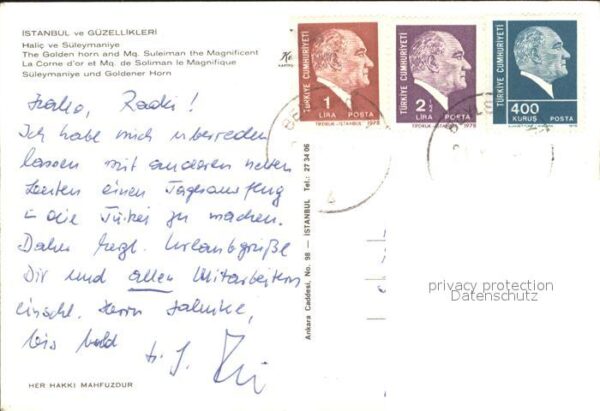 İSTANBUL ve GÜZELLİKLERİ
Haliç ve Süleymaniye
The Golden horn and Mq. Suleiman the Magnificent
La Corne d'or et Mq. de Soliman le Magnifique
Süleymaniye und Goldener Horn
Hallo,
Ich habe mich überreden
lassen mit anderen netten
Leuten einen Tagesausflug
in die Türkei zu machen.
Daher Urlaubgrüße
Dir und allen Mitarbeitern
einschl. Herrn
bis bald
HER HAKKI MAHFUZDUR
Ankara Caddesi, No. 98 — İSTANBUL Tel.: 27 34 06
TÜRKİYE CUMHURİYETİ
1
LİRA POSTA
1978
TÜRKİYE CUMHURİYETİ
2 ½
LİRA POSTA
1978
TÜRKİYE CUMHURİYETİ
400
KURUŞ POSTA
privacy protection
Datenschutz